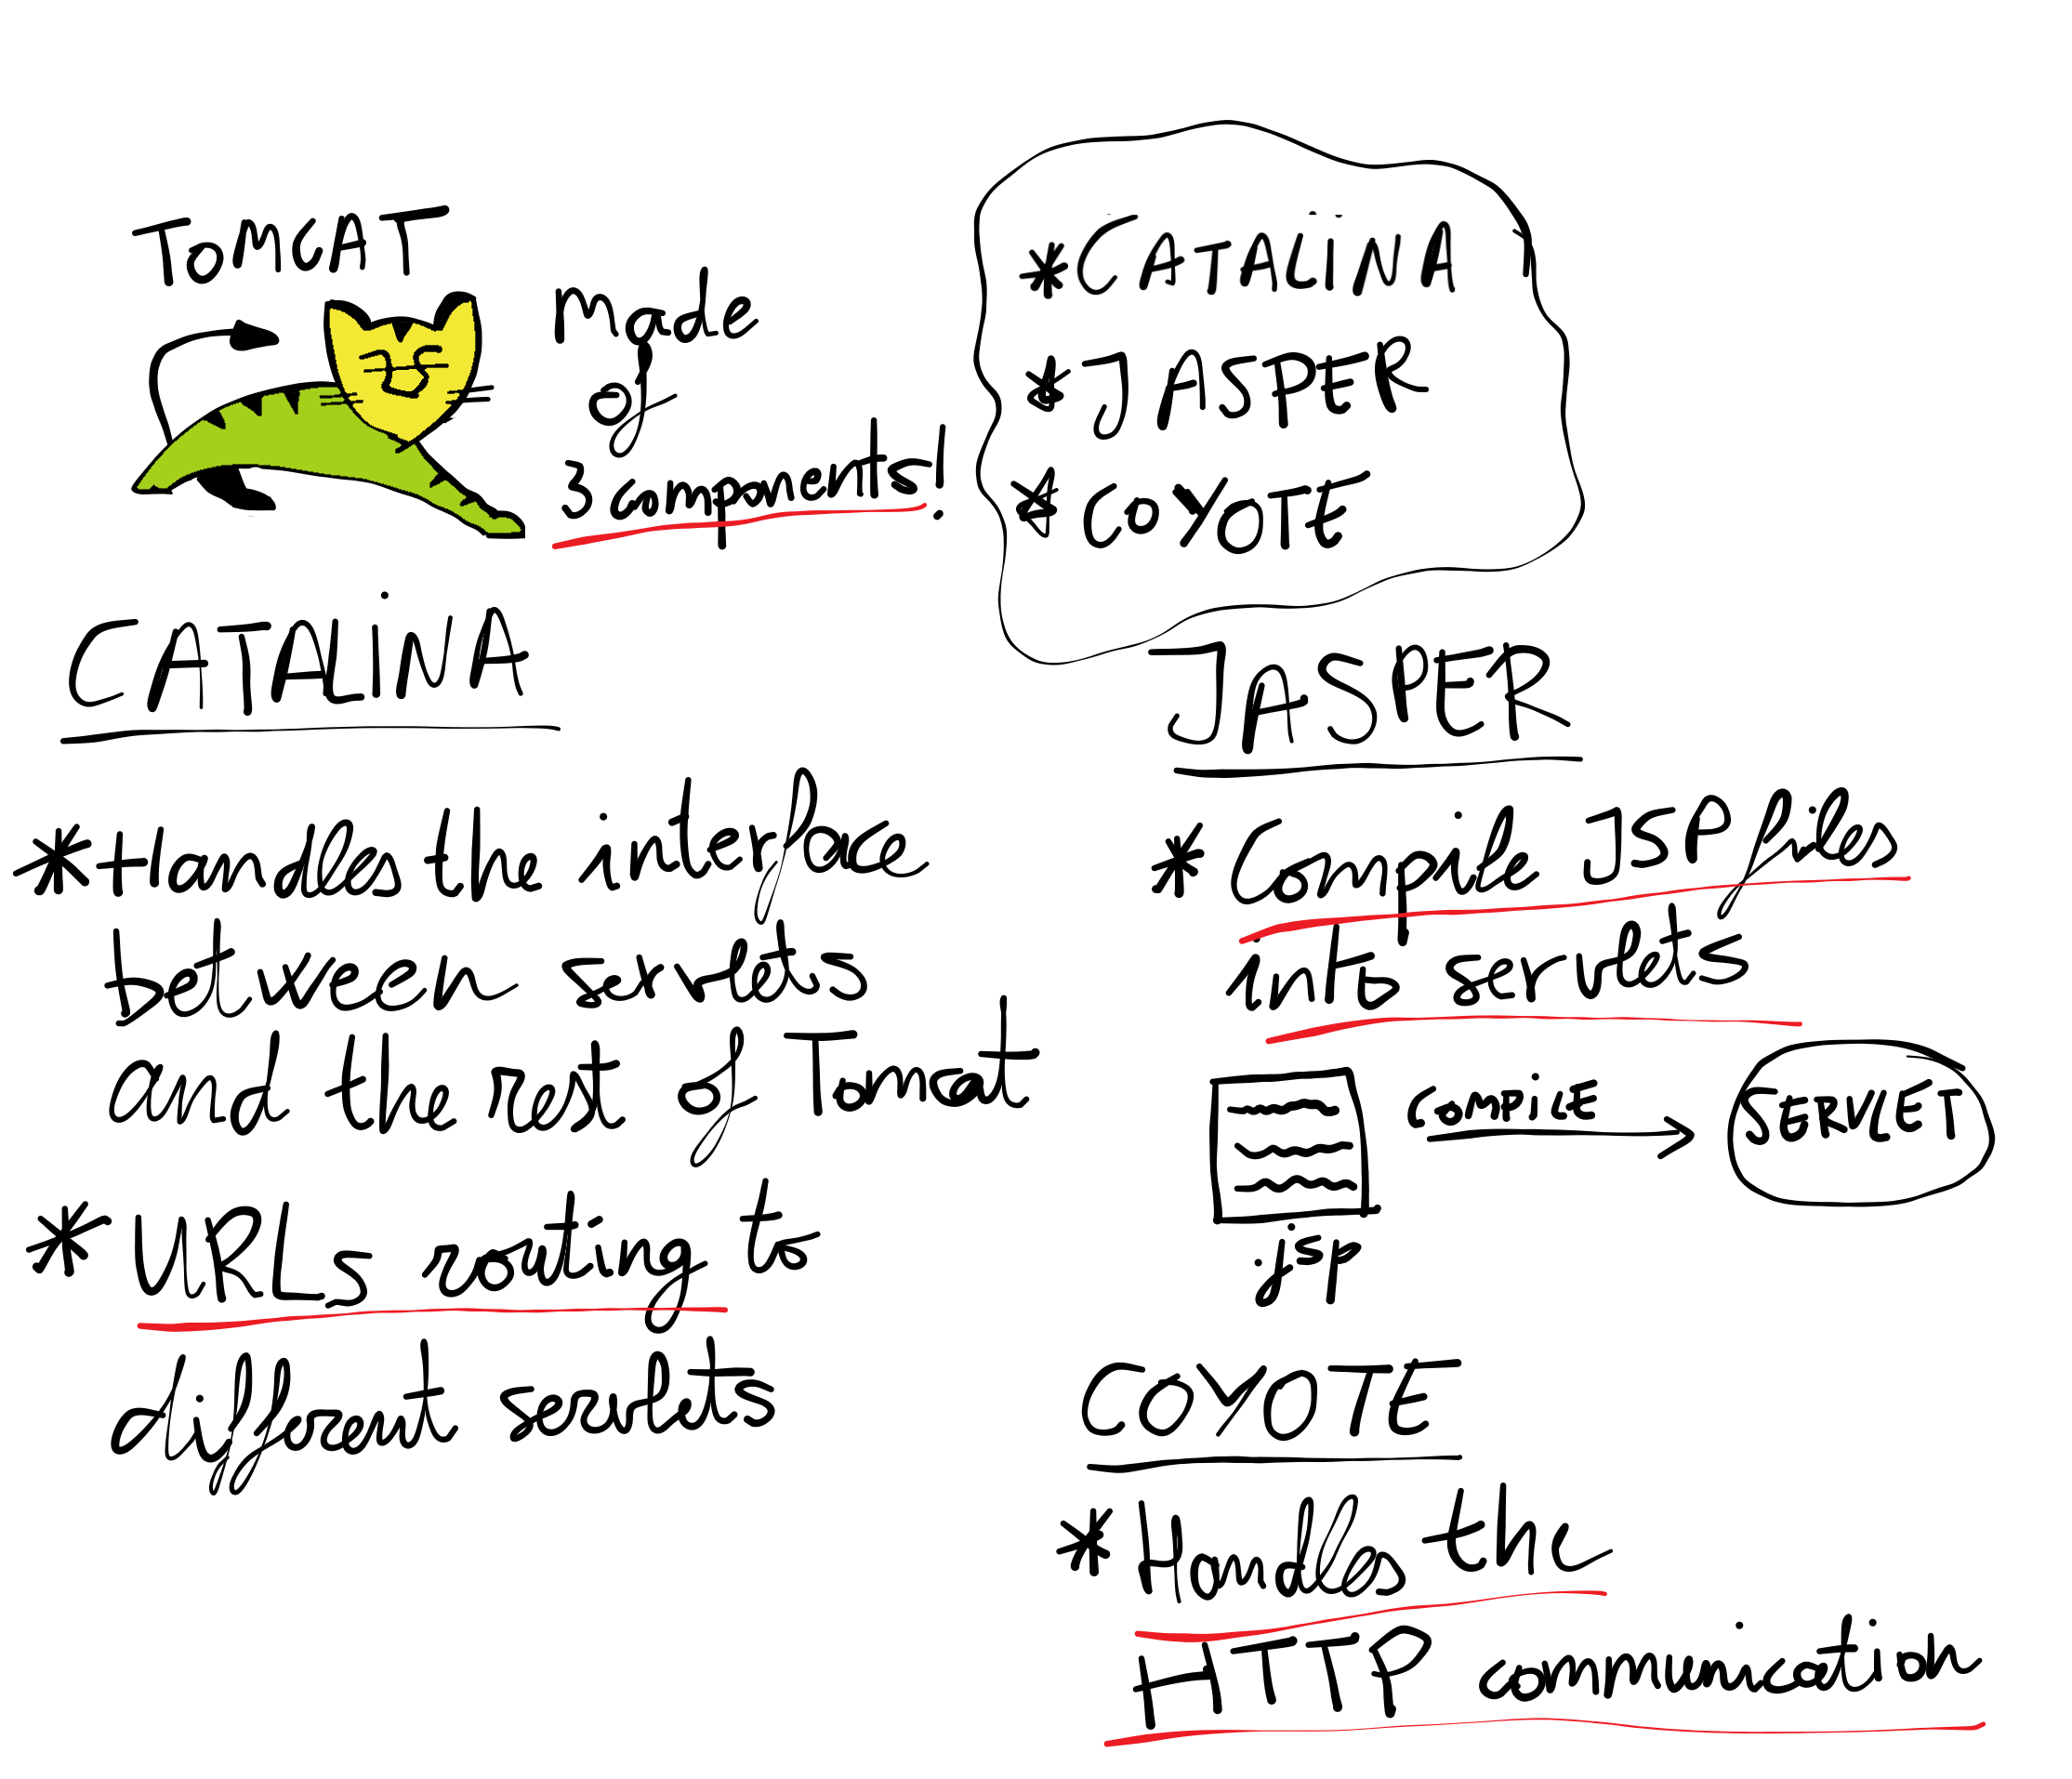 TOMCAT
Made
of
3 components!
* CATALiNA
* JASPER
* COYOTE
CATALiNA
* Handles the interface
between servlets
and the rest of Tomcat
* URLs routing to
different servlets
JASPER
* Compile JSP files
into servlets
COMPiLE
SERVLET
.jsp
COYOTE
* Handles the
HTTP communication